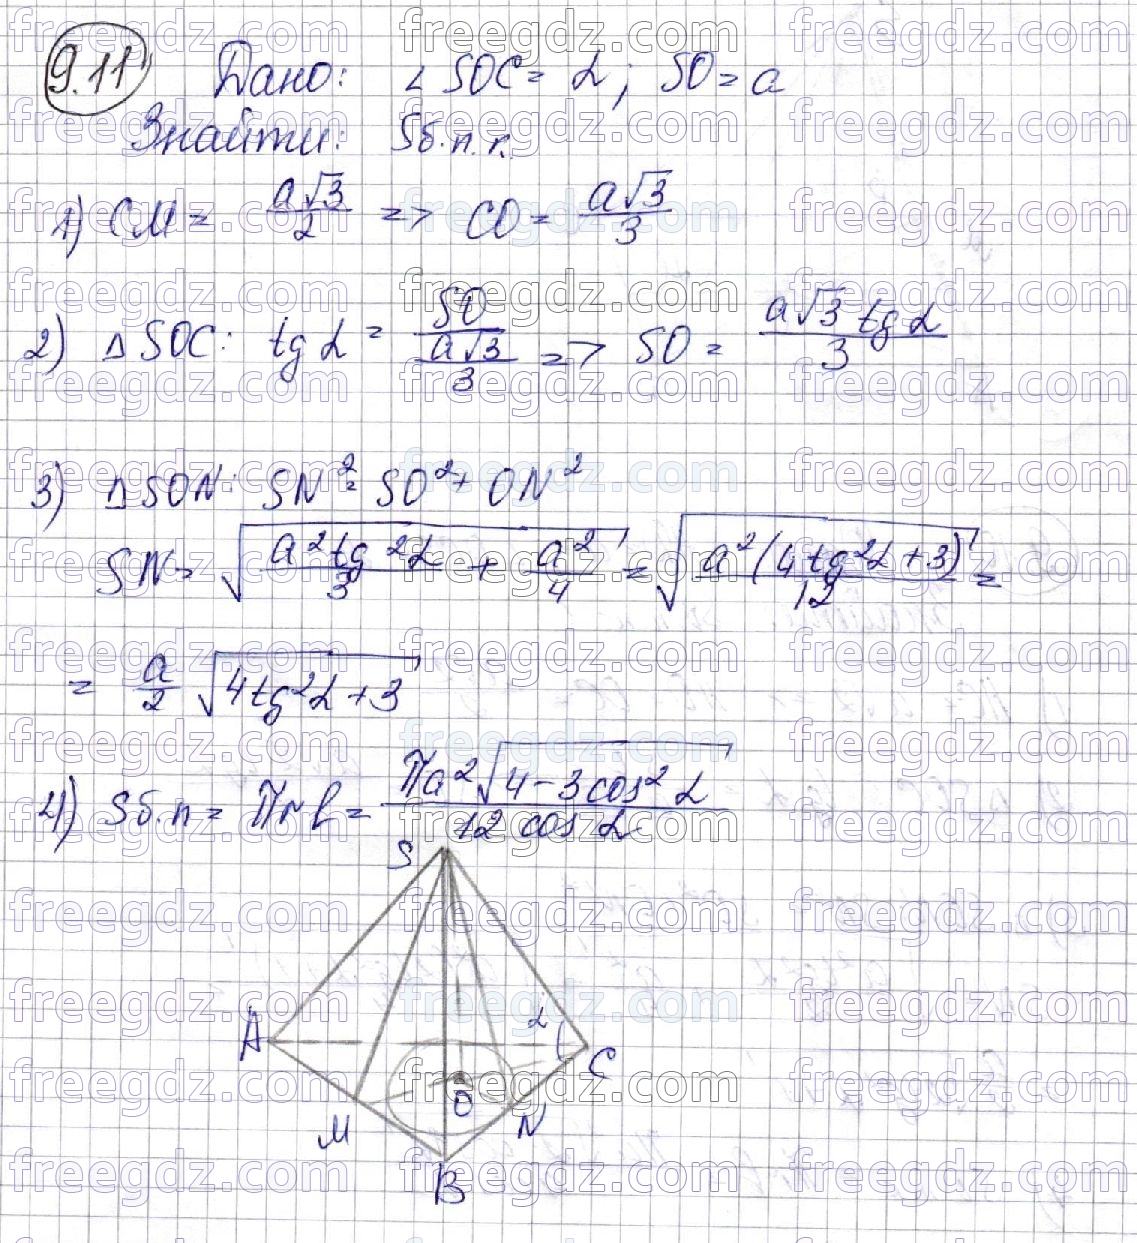 9.11 Дано: ∠SOC = α; SO = a
Знайти: Sб.п.к.
1) CM = a√3/2 => CO = a√3/3
2) △SOC: tg α = SO/(a√3/3) => SO = a√3 tg α/3
3) △SON: SN² = SO² + ON²
SN = √(a² tg² α/3 + a²/4) = √(a²(4tg² α + 3)/12) =
= a/2 √(4tg² α + 3)
4) Sб.п = πrl = πa²√(4 - 3cos² α)/(12 cos α)
S
A
α
C
O
M
N
B
freegdz.com